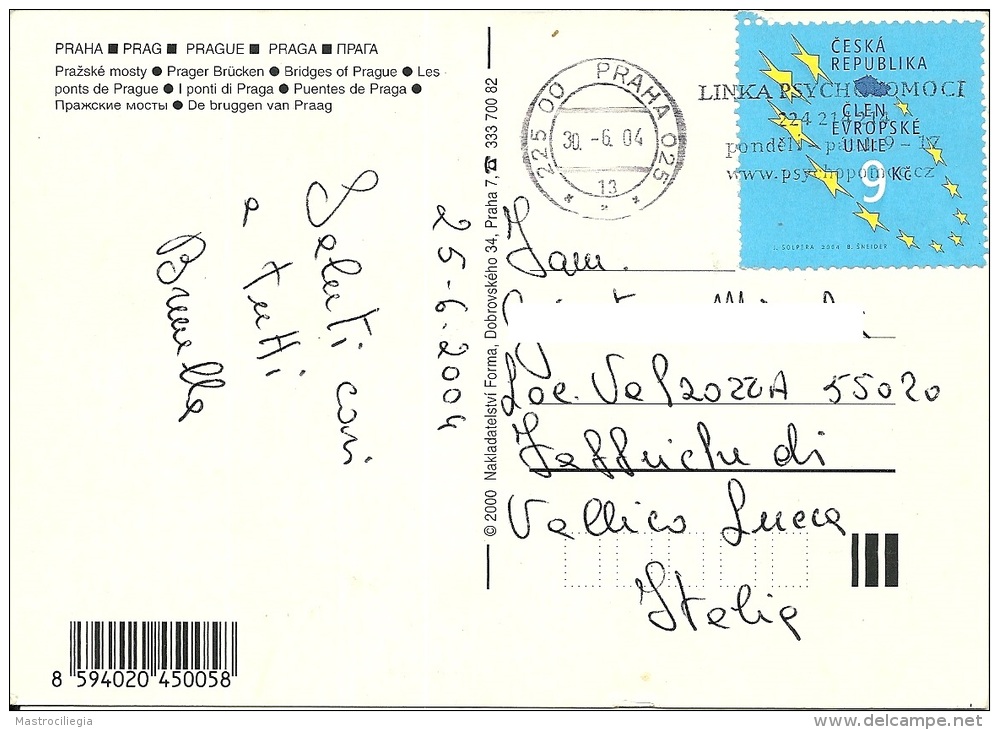 PRAHA ■ PRAG ■ PRAGUE ■ PRAGA ■ ПРАГА
Pražské mosty ● Prager Brücken ● Bridges of Prague ● Les
ponts de Prague ● I ponti di Praga ● Puentes de Praga ●
Пражские мосты ● De bruggen van Praag
25-6-2004
Saluti cari
a tutti
Brunella
© 2000 Nakladatelství Forma, Dobrovského 34, Praha 7, ☎ 333 700 82
225 00 PRAHA 025
30. -6. 04
13
LINKA PSYCHOPOMOCI
224 214 214
pondělí - pátek 9 - 17
www.psychopomoc.cz
ČESKÁ
REPUBLIKA
ČLEN
EVROPSKÉ
UNIE
9 Kč
I. SOLPERA 2004 B. ŠNEIDER
Fam.
Loc. Val Pozza 55020
Fabbriche di
Vallico Lucca
Italia
8 594020 450058
Mastrociliegia
delcampe.net